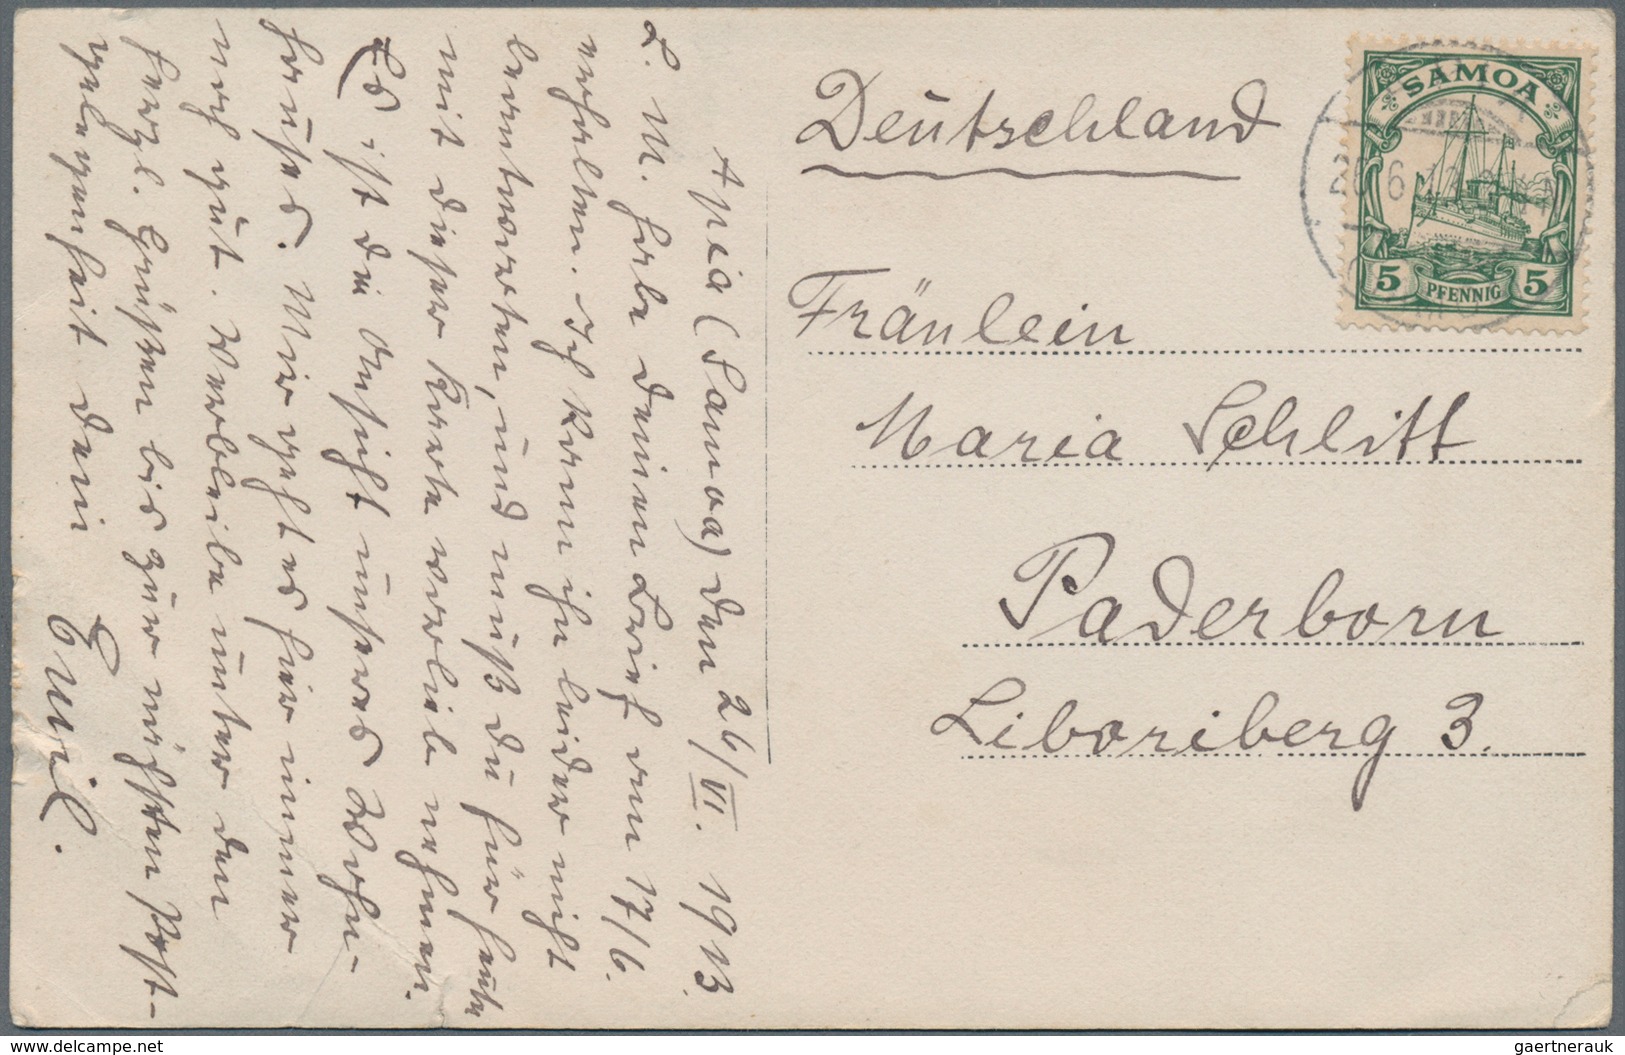 Apia (Samoa) den 26/VI. 1913.
L. M. habe deinen Brief vom 17/6.
erhalten. Ich kann ihn leider nicht
beantworten, und mußt du für heute
mit dieser Karte vorlieb nehmen.
Es ist die Ansicht unseres Wohn-
hauses. Mir geht es hier immer
noch gut. Verbleibe unter den
herzl. Grüßen bis zur nächsten Post-
gelegenheit dein
Emil.
Deutschland
SAMOA
5 PFENNIG 5
Fräulein
Maria Schlitt
Paderborn
Liboriberg 3.
www.delcampe.net
gaertnerauk